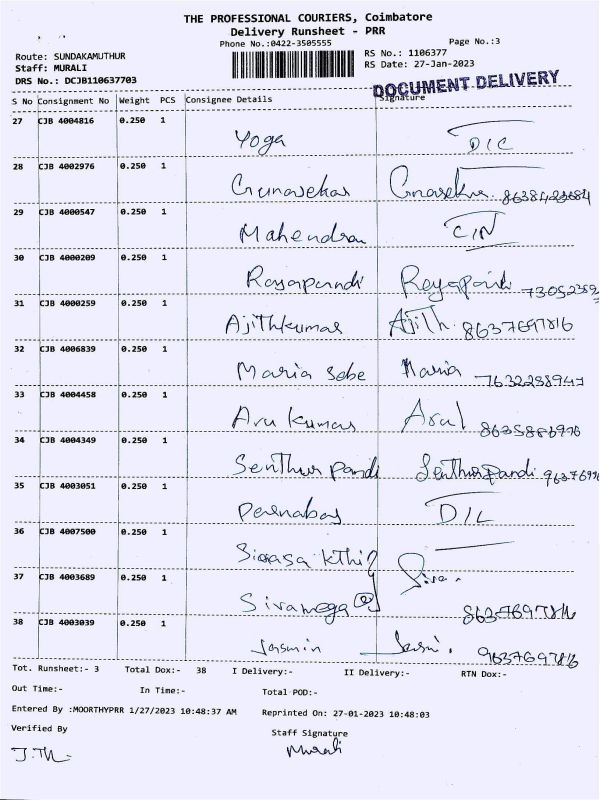 THE PROFESSIONAL COURIERS, Coimbatore
Delivery Runsheet - PRR
Phone No.:0422-3505555 Page No.:3
Route: SUNDAKAMUTHUR RS No.: 1106377
Staff: MURALI RS Date: 27-Jan-2023
DRS No.: DCJB110637703
DOCUMENT DELIVERY
S No Consignment No Weight PCS Consignee Details Signature
27 CJB 4004816 0.250 1
Yoga
28 CJB 4002976 0.250 1
Gunasekar
29 CJB 4000547 0.250 1
Mahendran
30 CJB 4000209 0.250 1
Rayapandi
31 CJB 4000259 0.250 1
Ajithkumar Ajith. 8637697816
32 CJB 4006839 0.250 1
Maria sebe Maria
33 CJB 4004458 0.250 1
Aru kumar Arul
34 CJB 4004349 0.250 1
Senthur pandi Senthurpandi
35 CJB 4003051 0.250 1
36 CJB 4007500 0.250 1
37 CJB 4003689 0.250 1 Siva.
8637697816
38 CJB 4003039 0.250 1
Jasmin 9637697816
Tot. Runsheet:- 3 Total Dox:- 38 I Delivery:- II Delivery:- RTN Dox:-
Out Time:- In Time:- Total POD:-
Entered By :MOORTHYPRR 1/27/2023 10:48:37 AM Reprinted On: 27-01-2023 10:48:03
Verified By Staff Signature
Murali